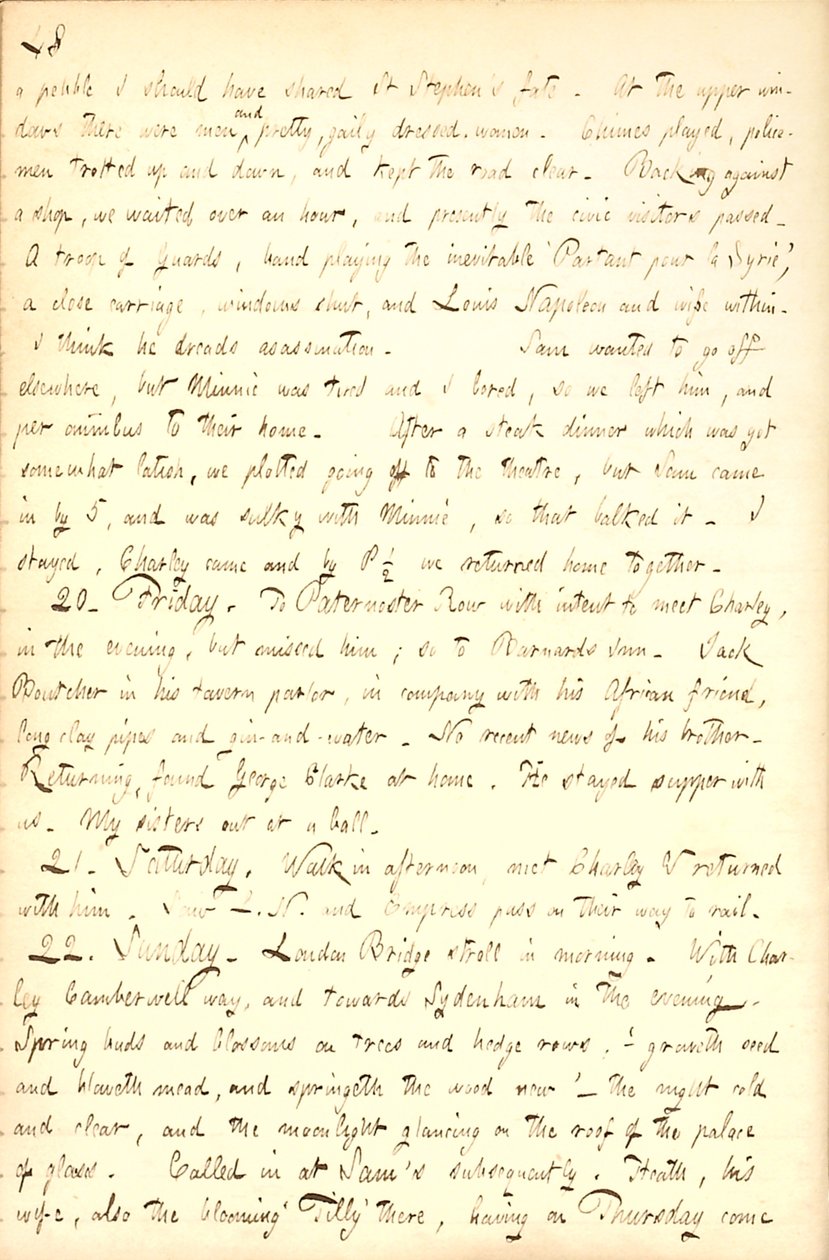 48
a pebble I should have shared St Stephen's fate. At the upper win-
dows there were men and pretty, gaily dressed women. Chimes played, police-
men trotted up and down, and kept the road clear. Backing against
a shop, we waited over an hour, and presently the civic visitors passed.
A troop of Guards, band playing the inevitable 'Partant pour la Syrie',
a close carriage, windows shut, and Louis Napoleon and wife within.
I think he dreads asassination. Sam wanted to go off
elsewhere, but Minnie was tired and I bored, so we left him, and
per omnibus to their home. After a steak dinner which was got
somewhat latish, we plotted going off to the theatre, but Sam came
in by 5, and was sulky with Minnie, so that balked it. I
stayed, Charley came and by 8 1/2 we returned home together.
20. Friday. To Paternoster Row with intent to meet Charley,
in the evening, but missed him; so to Barnards Inn. Jack
Boutcher in his tavern parlor, in company with his African friend,
long clay pipes and gin-and-water. No recent news of his brother.
Returning, found George Clarke at home. He stayed supper with
us. My sisters out at a ball.
21. Saturday. Walk in afternoon, met Charley & returned
with him. Saw L. N. and Empress pass on their way to rail.
22. Sunday. London Bridge stroll in morning. With Char-
ley Camberwell way, and towards Sydenham in the evening.
Spring buds and blossoms on trees and hedge rows, '- groweth seed
and bloweth mead, and springeth the wood new' - the night cold
and clear, and the moonlight glancing on the roof of the palace
of glass. Called in at Sam's subsequently. Heath, his
wife, also the blooming 'Tilly' there, having on Thursday come